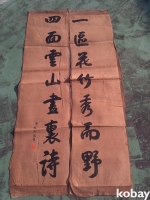 一區花竹秀而野
四面雲山畫裏詩
bokjagi.com